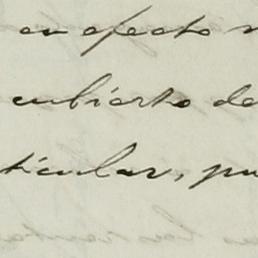 en efecto
cubierto de
ticular, pu